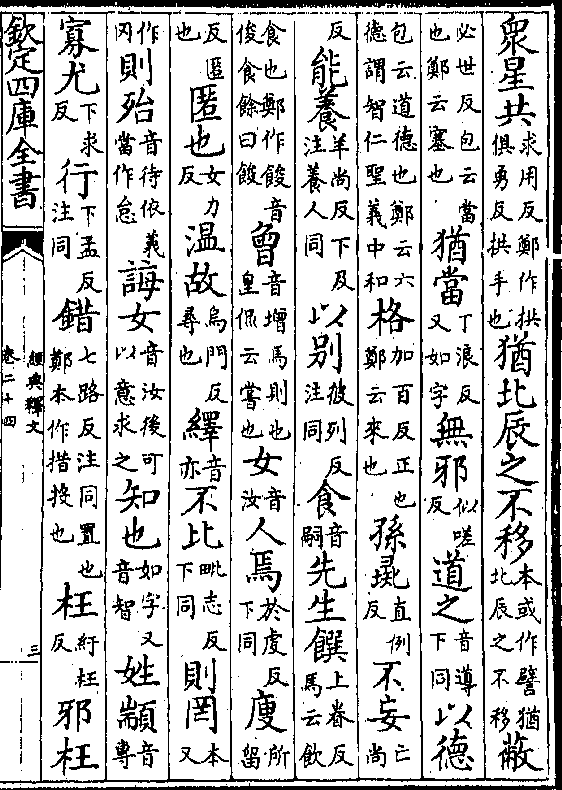 衆星共求用反鄭作拱俱勇反拱手也猶北辰之不移本或作譬猶北辰之不移蔽
必世反包云當也鄭云塞也猶當丁浪反又如字無邪似嗟反道之音導下同以德
包云道德也鄭云六德謂智仁聖義中和格加百反正也鄭云來也孫彘直例反不妄亡尚
反能養羊尚反下及注養人同以别彼列反注同食音嗣先生饌上眷反馬云飲
食也鄭作餕音俊食餘曰餕曾音增馬則也皇侃云嘗也女音汝人焉於虔反下同廋所留
反匿也匿也女力反温故烏門反尋也繹音亦不比毗志反下同則罔本又
作冈則殆音待依義當作怠誨女音汝後可以意求之知也如字又音智姓顓音專
寡尤下求反行下孟反注同錯七路反注同置也鄭本作措投也枉紆枉反邪枉
欽定四庫全書
經典釋文
卷二十四
三